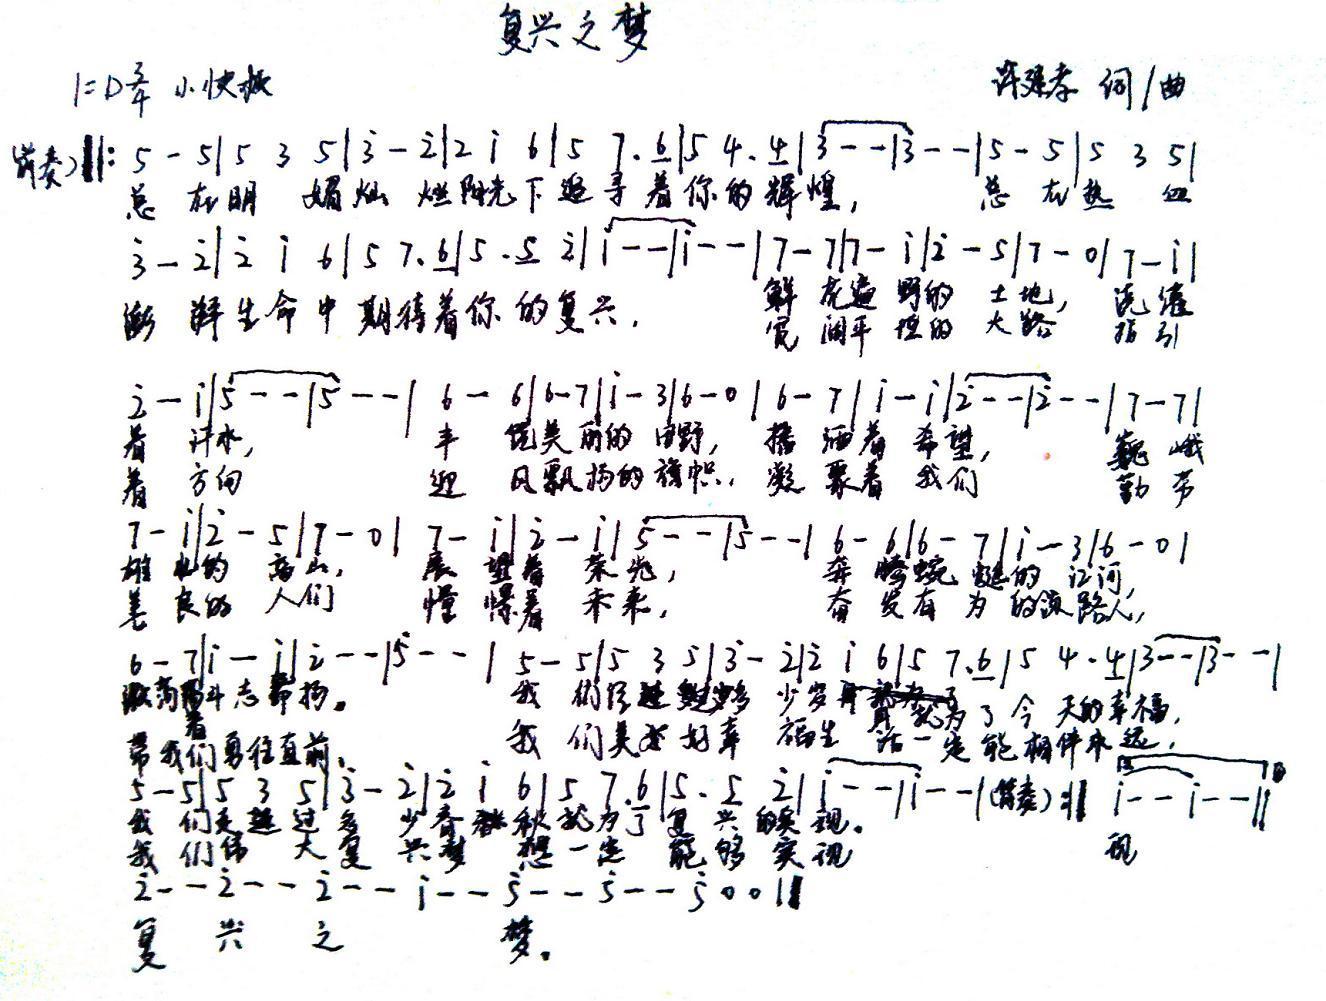 复兴之梦
1=D 3/4 小快板 许建孝 词/曲
前奏) ‖: 5 - 5|5 3 5|3̇ - 2̇|2 i 6|5 7.6|5 4.4|3--|3--|5-5|5 3 5|
总 在明 媚灿 烂阳光下追寻着你的辉煌, 总 在热 血
3̇ - 2̇|2̇ i 6|5 7.6|5.5 2̇|i--|i--|7-7|7-i|2̇-5|7-0|7-i|
澎 湃生命中期待着你的复兴. 鲜 花遍 野的 土地, 浇灌
宽 阔平 坦的 大路 指引
2̇-i|5--|5--|6-6|6-7|i-3|6-0|6-7|i-i|2̇--|2̇--|7-7|
着 汗水, 丰 饶美 丽的 田野, 播 洒着 希望, 巍峨
着 方向 迎 风飘 扬的 旗帜. 凝 聚着 我们 勤劳
7-i|2̇-5|7-0|7-i|2̇-i|5--|5--|6-6|6-7|i-3|6-0|
雄 的 高山, 展 望着 荣光, 奔 腾蜿 蜒的 江河,
善 良的 人们 憧 憬着 未来, 奋 发有 为 的领路人,
6-7|i-i|2̇--|5--|5-5|5 3 5|3̇-2̇|2̇ i 6|5 7.6|5 4.4|3--|3--|
斗志昂扬。 我 们 多 少岁月 就为了今 天的幸福,
带着我们勇往直前. 我 们美 好幸 福生 活一定能相伴永远,
5-5|5 3 5|3̇-2̇|2̇ i 6|5 7.6|5.5 2̇|i--|i--|(前奏):‖ i--i--‖
我 们走 过 多 少春 秋就为了复兴 的实现。
我 们伟 大 复 兴梦 想一定 能够 实现 现
2̇--2̇--2̇--i--5̇--5--5 0 0‖
复 兴 之 梦。